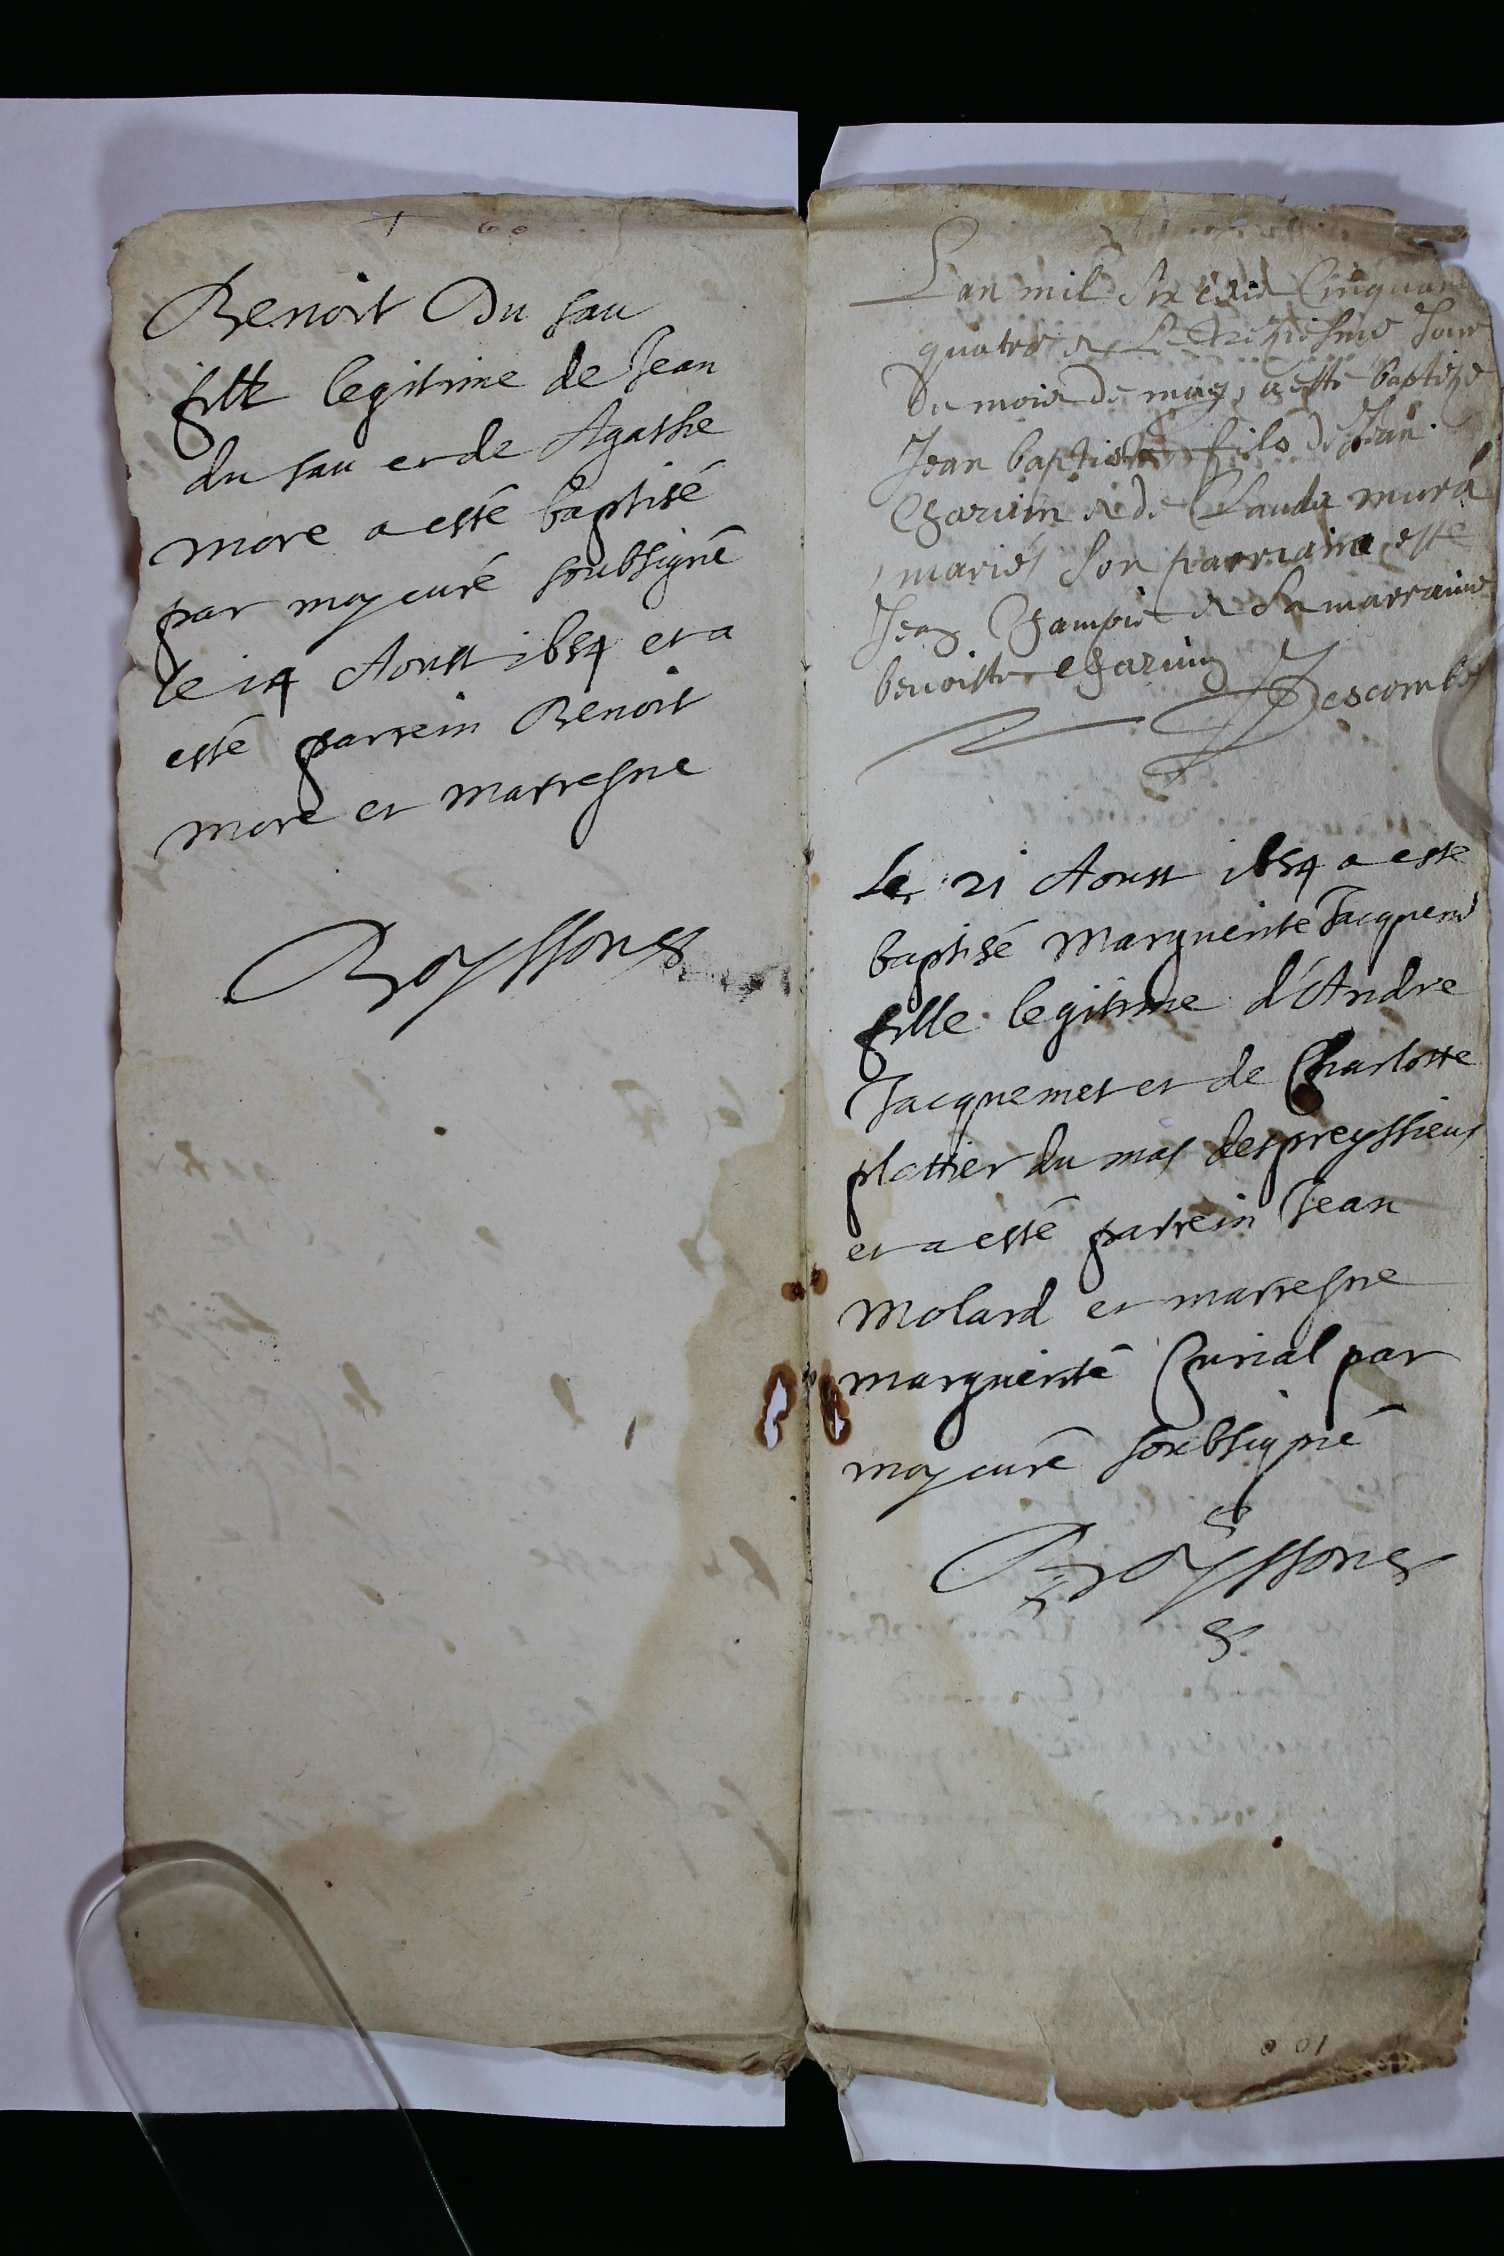 Benoit Du sau
filz legitime de Jean
du sau et de Agathe
more a esté baptisé
par moy curé soubsigné
le 14 Aoust 1654 et a
esté parrein Benoit
more et marresne
Boyssones
Lan mil six cens Cinquan
quatre et Le treziesme Jour
Du mois de may, a esté baptizé
Jean baptiste fils de Jean
Charvin et de Clauda mura
mariés son parrain este
Jean Champie et sa marraine
benoiste Charvin
Descombes
Le 21 Aoust 1654 a este
baptisé Marguerite Jacquemet
fille legitime d'Andre
Jacquemet et de Charlotte
plattier du mas despreyssieux
et a esté parrein Jean
Molard et marresne
marguerite Curial par
moy curé soubsigné
Boyssones